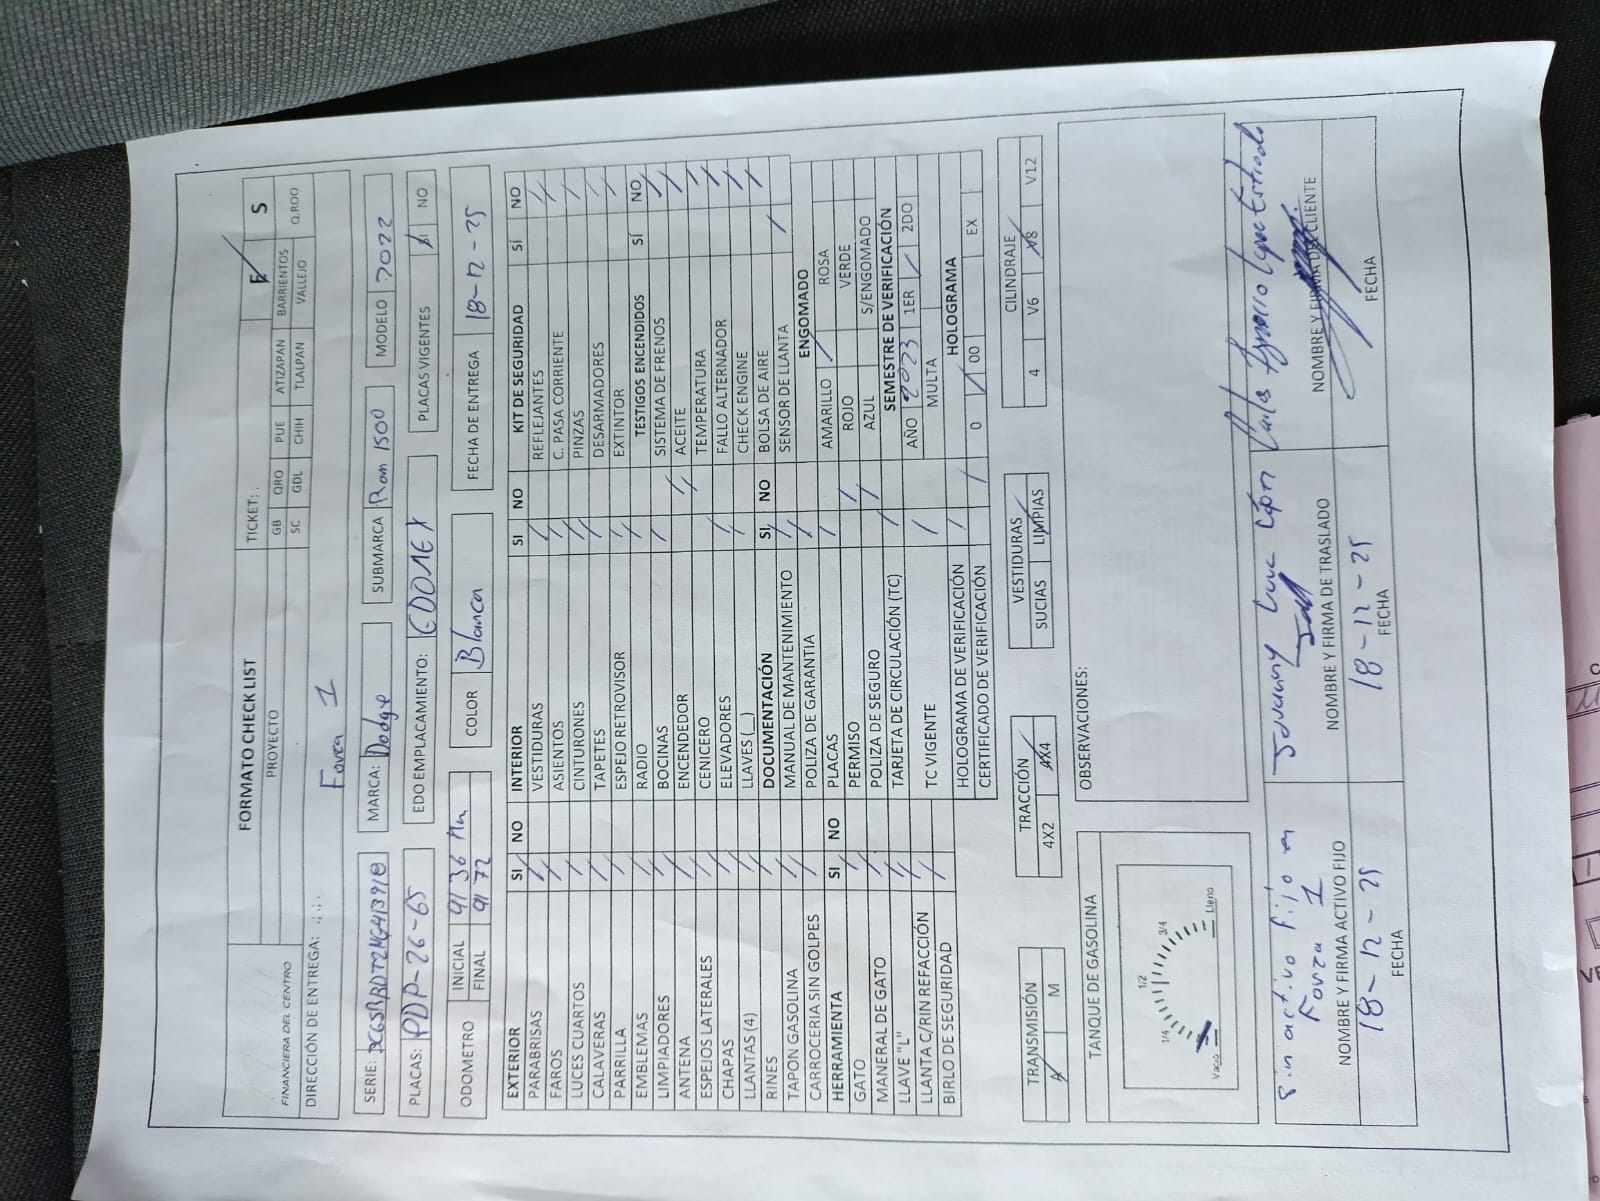 FORMATO CHECK LIST
TICKET: .
E S
FINANCIERA DEL CENTRO
PROYECTO
GB QRO PUE ATIZAPAN BARRIENTOS
SC GDL CHIH TLALPAN VALLEJO Q.ROO
DIRECCIÓN DE ENTREGA: .;.;.
Forza 1
SERIE:
MARCA: Dodge
SUBMARCA Ram 1500
MODELO 2022
PLACAS: PDP-26-65
EDO EMPLACAMIENTO: EDOMEX
PLACAS VIGENTES SI NO
ODOMETRO
INICIAL 9136
FINAL 9172
COLOR Blanca
FECHA DE ENTREGA 18-12-25
EXTERIOR SI NO
PARABRISAS
FAROS
LUCES CUARTOS
CALAVERAS
PARRILLA
EMBLEMAS
LIMPIADORES
ANTENA
ESPEJOS LATERALES
CHAPAS
LLANTAS (4)
RINES
TAPON GASOLINA
CARROCERIA SIN GOLPES
HERRAMIENTA SI NO
GATO
MANERAL DE GATO
LLAVE "L"
LLANTA C/RIN REFACCIÓN
BIRLO DE SEGURIDAD
INTERIOR SI NO
VESTIDURAS
ASIENTOS
CINTURONES
TAPETES
ESPEJO RETROVISOR
RADIO
BOCINAS
ENCENDEDOR
CENICERO
ELEVADORES
LLAVES (__)
DOCUMENTACIÓN SI NO
MANUAL DE MANTENIMIENTO
POLIZA DE GARANTIA
PLACAS
PERMISO
POLIZA DE SEGURO
TARJETA DE CIRCULACIÓN (TC)
TC VIGENTE
HOLOGRAMA DE VERIFICACIÓN
CERTIFICADO DE VERIFICACIÓN
KIT DE SEGURIDAD SÍ NO
REFLEJANTES
C. PASA CORRIENTE
PINZAS
DESARMADORES
EXTINTOR
TESTIGOS ENCENDIDOS SÍ NO
SISTEMA DE FRENOS
ACEITE
TEMPERATURA
FALLO ALTERNADOR
CHECK ENGINE
BOLSA DE AIRE
SENSOR DE LLANTA
ENGOMADO
AMARILLO ROSA
ROJO VERDE
AZUL S/ENGOMADO
SEMESTRE DE VERIFICACIÓN
AÑO 2023 1ER 2DO
MULTA
HOLOGRAMA
0 00 EX
TRANSMISIÓN
A M
TRACCIÓN
4X2 4X4
VESTIDURAS
SUCIAS LIMPIAS
CILINDRAJE
4 V6 V8 V12
TANQUE DE GASOLINA
Vacio 1/4 1/2 3/4 Lleno
OBSERVACIONES:
Sin activo fijo en
Forza 1
NOMBRE Y FIRMA ACTIVO FIJO
18-12-25
FECHA
NOMBRE Y FIRMA DE TRASLADO
18-12-25
FECHA
NOMBRE Y FIRMA DEL CLIENTE
FECHA